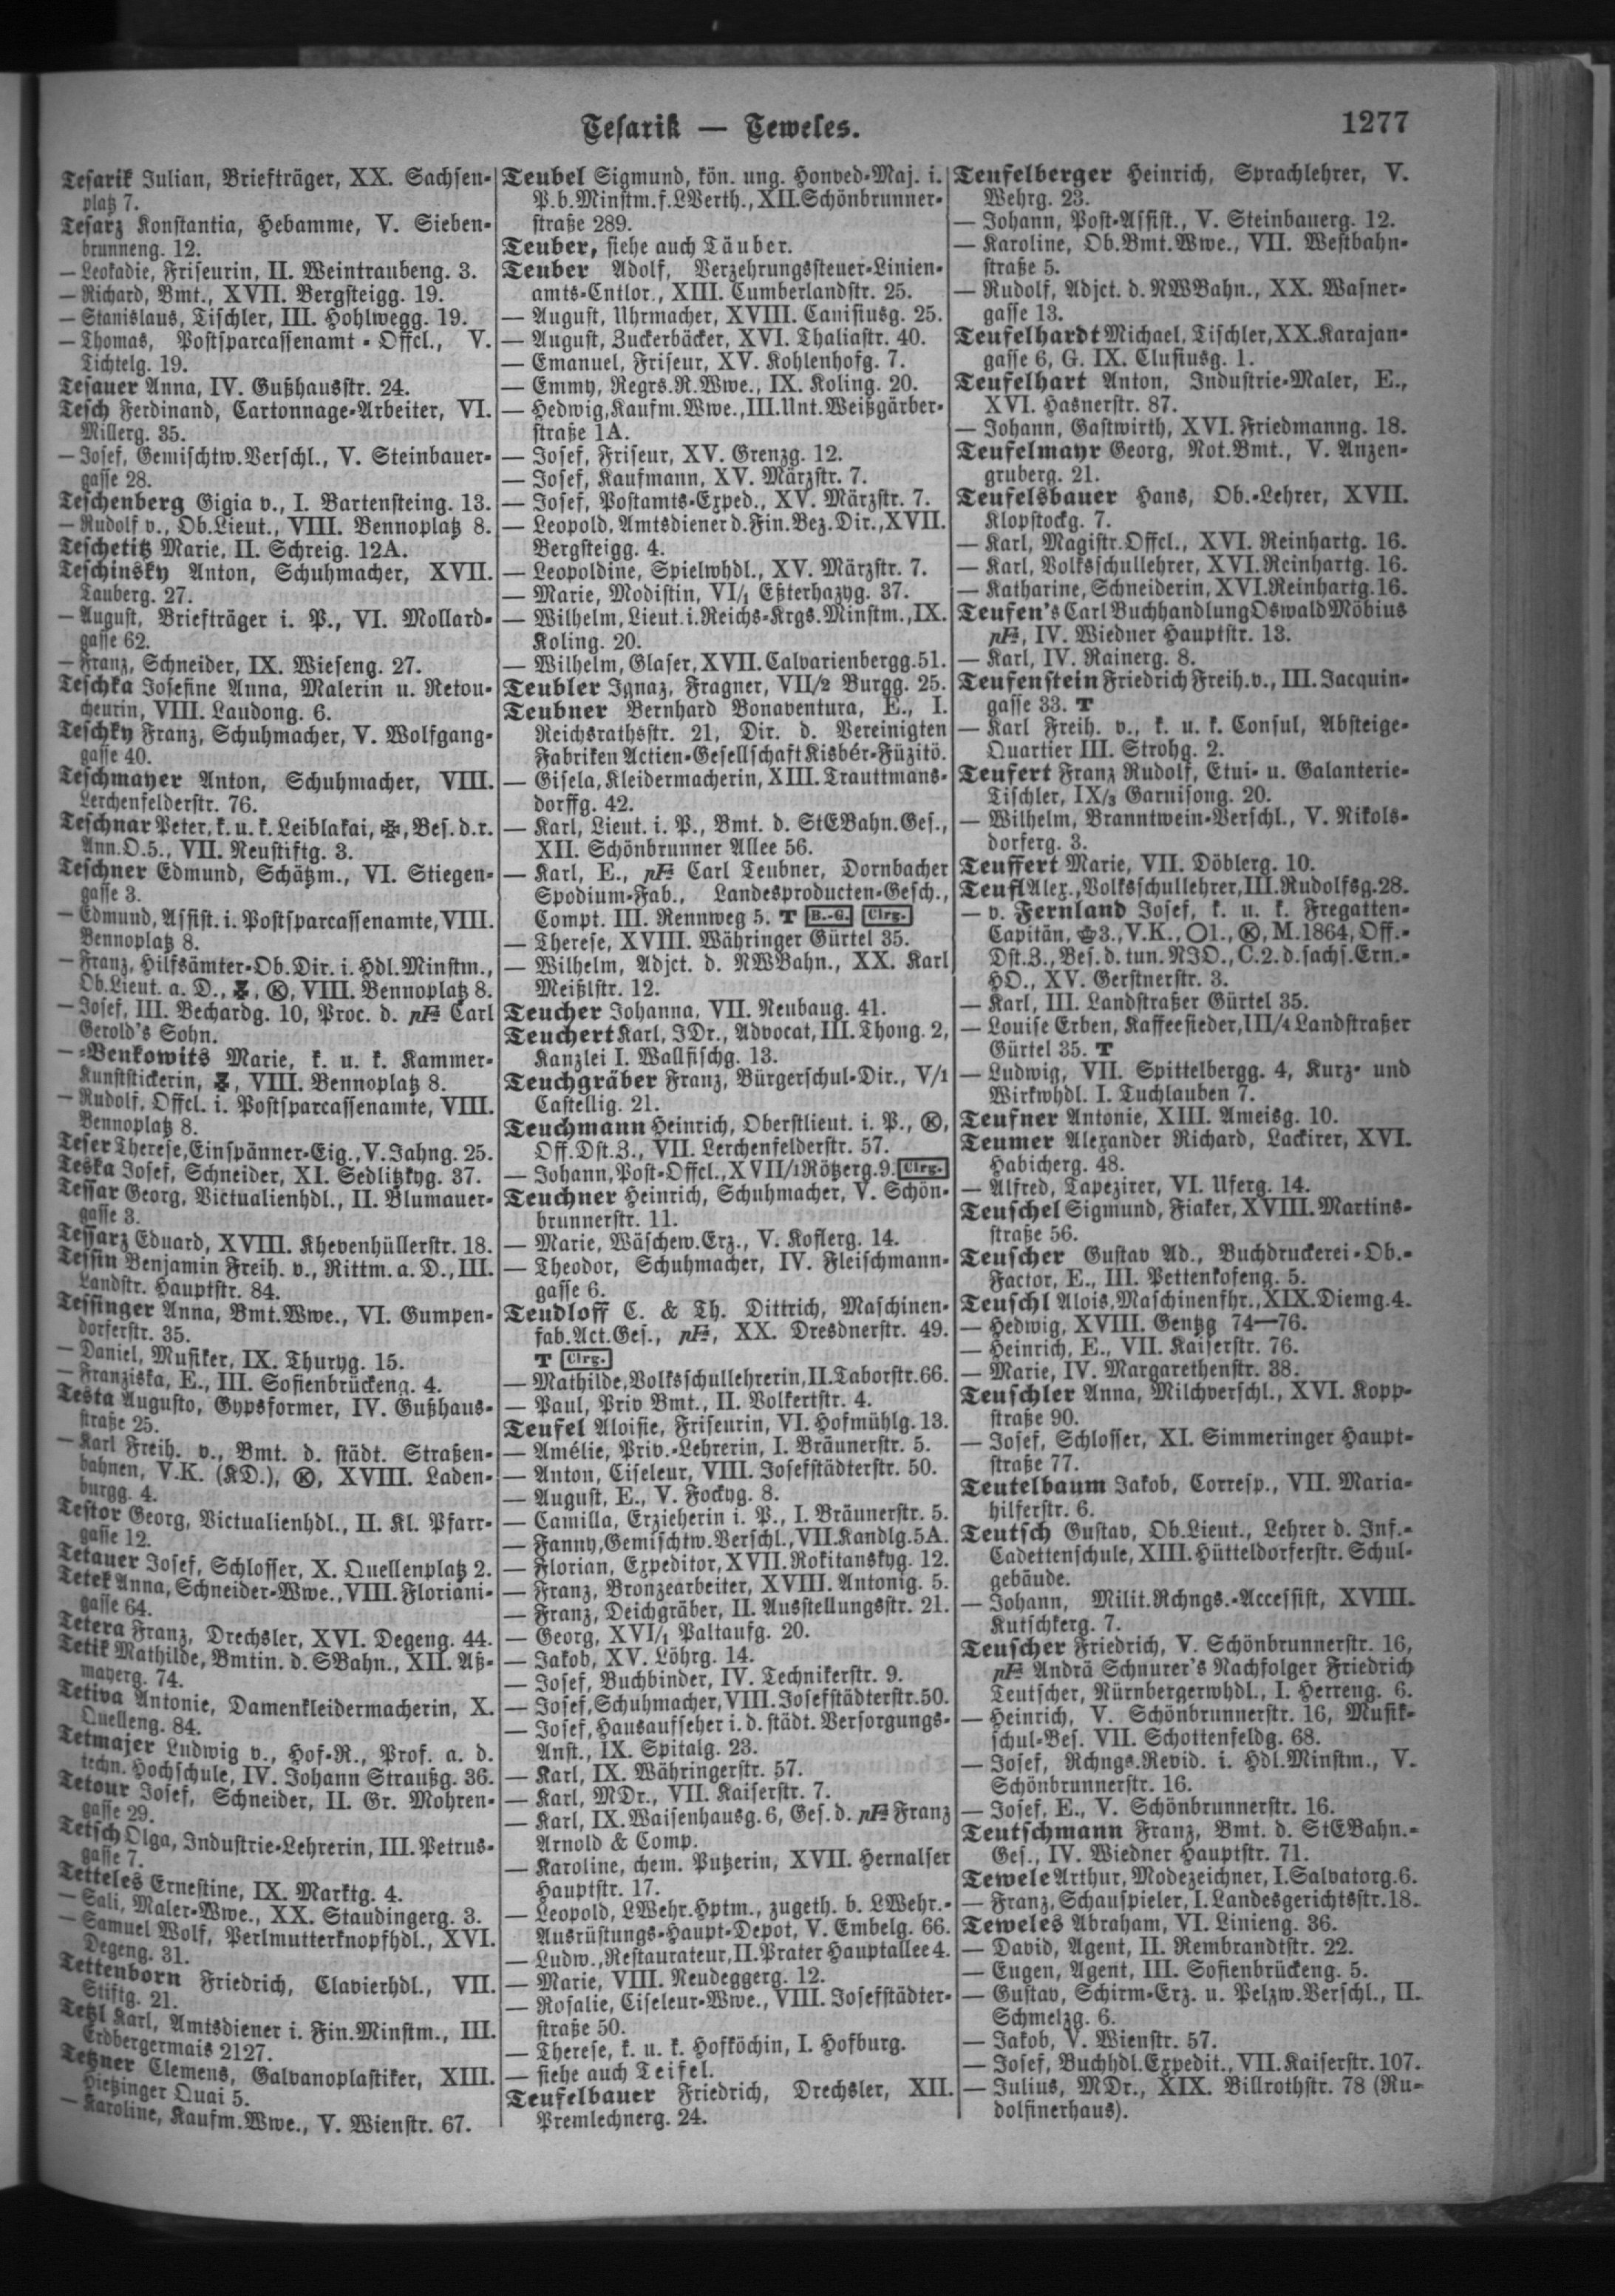 Tesarik — Teweles.
1277
Tesarik Julian, Briefträger, XX. Sachsen-
platz 7.
Tesarz Konstantia, Hebamme, V. Sieben-
brunneng. 12.
— Leokadie, Friseurin, II. Weintraubeng. 3.
— Richard, Bmt., XVII. Bergsteigg. 19.
— Stanislaus, Tischler, III. Hohlwegg. 19.
— Thomas, Postsparcassenamt-Offcl., V.
Tichtelg. 19.
Tesauer Anna, IV. Gußhausstr. 24.
Tesch Ferdinand, Cartonnage-Arbeiter, VI.
Millerg. 35.
— Josef, Gemischtw.Verschl., V. Steinbauer-
gasse 28.
Teschenberg Gigia v., I. Bartensteing. 13.
— Rudolf v., Ob.Lieut., VIII. Bennoplatz 8.
Teschetitz Marie, II. Schreig. 12A.
Teschinsky Anton, Schuhmacher, XVII.
Tauberg. 27.
— August, Briefträger i. P., VI. Mollard-
gasse 62.
— Franz, Schneider, IX. Wieseng. 27.
Teschka Josefine Anna, Malerin u. Retou-
cheurin, VIII. Laudong. 6.
Teschky Franz, Schuhmacher, V. Wolfgang-
gasse 40.
Teschmayer Anton, Schuhmacher, VIII.
Lerchenfelderstr. 76.
Teschnar Peter, k. u. k. Leiblakai, Bes. d. r.
Ann.O.5., VII. Neustiftg. 3.
Teschner Edmund, Schätzm., VI. Stiegen-
gasse 3.
— Edmund, Assist. i. Postsparcassenamte, VIII.
Bennoplatz 8.
— Franz, Hilfsämter-Ob.Dir. i. Hdl.Minstm.,
Ob.Lieut. a. D., Ⓚ, VIII. Bennoplatz 8.
— Josef, III. Bechardg. 10, Proc. d. pFa Carl
Gerold's Sohn.
— -Benkowits Marie, k. u. k. Kammer-
Kunststickerin, VIII. Bennoplatz 8.
— Rudolf, Offcl. i. Postsparcassenamte, VIII.
Bennoplatz 8.
Teser Therese, Einspänner-Eig., V. Jahng. 25.
Teska Josef, Schneider, XI. Sedlitzkyg. 37.
Tessar Georg, Victualienhdl., II. Blumauer-
gasse 3.
Tessarz Eduard, XVIII. Khevenhüllerstr. 18.
Tessin Benjamin Freih. v., Rittm. a. D., III.
Landstr. Hauptstr. 84.
Tessinger Anna, Bmt.Wwe., VI. Gumpen-
dorferstr. 35.
— Daniel, Musiker, IX. Thuryg. 15.
— Franziska, E., III. Sofienbrückeng. 4.
Testa Augusto, Gypsformer, IV. Gußhaus-
straße 25.
— Karl Freih. v., Bmt. d. städt. Straßen-
bahnen, V.K. (KD.), Ⓚ, XVIII. Laden-
burgg. 4.
Testor Georg, Victualienhdl., II. Kl. Pfarr-
gasse 12.
Tetauer Josef, Schlosser, X. Quellenplatz 2.
Tetek Anna, Schneider-Wwe., VIII. Floriani-
gasse 64.
Tetera Franz, Drechsler, XVI. Degeng. 44.
Tetik Mathilde, Bmtin. d. SBahn., XII. Aß-
mayerg. 74.
Tetiva Antonie, Damenkleidermacherin, X.
Quelleng. 84.
Tetmajer Ludwig v., Hof-R., Prof. a. d.
techn. Hochschule, IV. Johann Straußg. 36.
Tetour Josef, Schneider, II. Gr. Mohren-
gasse 29.
Tetsch Olga, Industrie-Lehrerin, III. Petrus-
gasse 7.
Tetteles Ernestine, IX. Marktg. 4.
— Sali, Maler-Wwe., XX. Staudingerg. 3.
— Samuel Wolf, Perlmutterknopfhdl., XVI.
Degeng. 31.
Tettenborn Friedrich, Clavierhdl., VII.
Stiftg. 21.
Tetzl Karl, Amtsdiener i. Fin.Minstm., III.
Erdbergermais 2127.
Tetzner Clemens, Galvanoplastiker, XIII.
Hietzinger Quai 5.
— Karoline, Kaufm.Wwe., V. Wienstr. 67.
Teubel Sigmund, kön. ung. Honved-Maj. i.
P. b. Minstm. f. LVerth., XII. Schönbrunner-
straße 289.
Teuber, siehe auch Täuber.
Teuber Adolf, Verzehrungssteuer-Linien-
amts-Cntlor., XIII. Cumberlandstr. 25.
— August, Uhrmacher, XVIII. Canisiusg. 25.
— August, Zuckerbäcker, XVI. Thaliastr. 40.
— Emanuel, Friseur, XV. Kohlenhofg. 7.
— Emmy, Regrs.R.Wwe., IX. Koling. 20.
— Hedwig, Kaufm.Wwe., III. Unt. Weißgärber-
straße 1A.
— Josef, Friseur, XV. Grenzg. 12.
— Josef, Kaufmann, XV. Märzstr. 7.
— Josef, Postamts-Exped., XV. Märzstr. 7.
— Leopold, Amtsdiener d. Fin. Bez. Dir., XVII.
Bergsteigg. 4.
— Leopoldine, Spielwhdl., XV. Märzstr. 7.
— Marie, Modistin, VI/1 Eßterhazyg. 37.
— Wilhelm, Lieut. i. Reichs-Krgs. Minstm., IX.
Koling. 20.
— Wilhelm, Glaser, XVII. Calvarienbergg. 51.
Teubler Ignaz, Fragner, VII/2 Burgg. 25.
Teubner Bernhard Bonaventura, E., I.
Reichsrathsstr. 21, Dir. d. Vereinigten
Fabriken Actien-Gesellschaft Kisbér-Füzitö.
— Gisela, Kleidermacherin, XIII. Trauttmans-
dorffg. 42.
— Karl, Lieut. i. P., Bmt. d. StEBahn. Ges.,
XII. Schönbrunner Allee 56.
— Karl, E., pFa Carl Teubner, Dornbacher
Spodium-Fab., Landesproducten-Gesch.,
Compt. III. Rennweg 5. T B.-G. Clrg.
— Therese, XVIII. Währinger Gürtel 35.
— Wilhelm, Adjct. d. NWBahn., XX. Karl
Meißlstr. 12.
Teucher Johanna, VII. Neubaug. 41.
Teuchert Karl, JDr., Advocat, III. Thong. 2,
Kanzlei I. Wallfischg. 13.
Teuchgräber Franz, Bürgerschul-Dir., V/1
Castellig. 21.
Teuchmann Heinrich, Oberstlieut. i. P., Ⓚ,
Off.Dst.Z., VII. Lerchenfelderstr. 57.
— Johann, Post-Offcl., XVII/1 Rötzerg. 9. Clrg.
Teuchner Heinrich, Schuhmacher, V. Schön-
brunnerstr. 11.
— Marie, Wäschew.Erz., V. Koflerg. 14.
— Theodor, Schuhmacher, IV. Fleischmann-
gasse 6.
Teudloff C. & Th. Dittrich, Maschinen-
fab.Act.Ges., pFa, XX. Dresdnerstr. 49.
T Clrg.
— Mathilde, Volksschullehrerin, II. Taborstr. 66.
— Paul, Priv Bmt., II. Volkertstr. 4.
Teufel Aloisie, Friseurin, VI. Hofmühlg. 13.
— Amélie, Priv.-Lehrerin, I. Bräunerstr. 5.
— Anton, Ciseleur, VIII. Josefstädterstr. 50.
— August, E., V. Fockyg. 8.
— Camilla, Erzieherin i. P., I. Bräunerstr. 5.
— Fanny, Gemischtw. Verschl., VII. Kandlg. 5A.
— Florian, Expeditor, XVII. Rokitanskyg. 12.
— Franz, Bronzearbeiter, XVIII. Antonig. 5.
— Franz, Deichgräber, II. Ausstellungsstr. 21.
— Georg, XVI/1 Paltaufg. 20.
— Jakob, XV. Löhrg. 14.
— Josef, Buchbinder, IV. Technikerstr. 9.
— Josef, Schuhmacher, VIII. Josefstädterstr. 50.
— Josef, Hausaufseher i. d. städt. Versorgungs-
Anst., IX. Spitalg. 23.
— Karl, IX. Währingerstr. 57.
— Karl, MDr., VII. Kaiserstr. 7.
— Karl, IX. Waisenhausg. 6, Ges. d. pFa Franz
Arnold & Comp.
— Karoline, chem. Putzerin, XVII. Hernalser
Hauptstr. 17.
— Leopold, LWehr.Hptm., zugeth. b. LWehr.-
Ausrüstungs-Haupt-Depot, V. Embelg. 66.
— Ludw., Restaurateur, II. Prater Hauptallee 4.
— Marie, VIII. Neudeggerg. 12.
— Rosalie, Ciseleur-Wwe., VIII. Josefstädter-
straße 50.
— Therese, k. u. k. Hofköchin, I. Hofburg.
— siehe auch Teifel.
Teufelbauer Friedrich, Drechsler, XII.
Premlechnerg. 24.
Teufelberger Heinrich, Sprachlehrer, V.
Wehrg. 23.
— Johann, Post-Assist., V. Steinbauerg. 12.
— Karoline, Ob.Bmt.Wwe., VII. Westbahn-
straße 5.
— Rudolf, Adjct. d. NWBahn., XX. Wasner-
gasse 13.
Teufelhardt Michael, Tischler, XX. Karajan-
gasse 6, G. IX. Clusiusg. 1.
Teufelhart Anton, Industrie-Maler, E.,
XVI. Hasnerstr. 87.
— Johann, Gastwirth, XVI. Friedmanng. 18.
Teufelmayr Georg, Not.Bmt., V. Anzen-
gruberg. 21.
Teufelsbauer Hans, Ob.-Lehrer, XVII.
Klopstockg. 7.
— Karl, Magistr.Offcl., XVI. Reinhartg. 16.
— Karl, Volksschullehrer, XVI. Reinhartg. 16.
— Katharine, Schneiderin, XVI. Reinhartg. 16.
Teufen's Carl Buchhandlung Oswald Möbius
pFa, IV. Wiedner Hauptstr. 13.
— Karl, IV. Rainerg. 8.
Teufenstein Friedrich Freih. v., III. Jacquin-
gasse 33. T
— Karl Freih. v., k. u. k. Consul, Absteige-
Quartier III. Strohg. 2.
Teufert Franz Rudolf, Etui- u. Galanterie-
Tischler, IX/3 Garnisong. 20.
— Wilhelm, Branntwein-Verschl., V. Nikols-
dorferg. 3.
Teuffert Marie, VII. Döblerg. 10.
Teufl Alex., Volksschullehrer, III. Rudolfsg. 28.
— v. Fernland Josef, k. u. k. Fregatten-
Capitän, 3., V.K., O1., Ⓚ, M.1864, Off.-
Dst.Z., Bes. d. tun. NIO., C.2. d. sachs. Ern.-
HO., XV. Gerstnerstr. 3.
— Karl, III. Landstraßer Gürtel 35.
— Louise Erben, Kaffeesieder, III/4 Landstraßer
Gürtel 35. T
— Ludwig, VII. Spittelbergg. 4, Kurz- und
Wirkwhdl. I. Tuchlauben 7.
Teufner Antonie, XIII. Ameisg. 10.
Teumer Alexander Richard, Lackirer, XVI.
Habicherg. 48.
— Alfred, Tapezirer, VI. Uferg. 14.
Teuschel Sigmund, Fiaker, XVIII. Martins-
straße 56.
Teuscher Gustav Ad., Buchdruckerei-Ob.-
Factor, E., III. Pettenkofeng. 5.
Teuschl Alois, Maschinenfhr., XIX. Diemg. 4.
— Hedwig, XVIII. Gentzg 74—76.
— Heinrich, E., VII. Kaiserstr. 76.
— Marie, IV. Margarethenstr. 38.
Teuschler Anna, Milchverschl., XVI. Kopp-
straße 90.
— Josef, Schlosser, XI. Simmeringer Haupt-
straße 77.
Teutelbaum Jakob, Corresp., VII. Maria-
hilferstr. 6.
Teutsch Gustav, Ob.Lieut., Lehrer d. Inf.-
Cadettenschule, XIII. Hütteldorferstr. Schul-
gebäude.
— Johann, Milit.Rchngs.-Accessist, XVIII.
Kutschkerg. 7.
Teuscher Friedrich, V. Schönbrunnerstr. 16,
pFa Andrä Schnurer's Nachfolger Friedrich
Teutscher, Nürnbergerwhdl., I. Herreng. 6.
— Heinrich, V. Schönbrunnerstr. 16, Musik-
schul-Bes. VII. Schottenfeldg. 68.
— Josef, Rchngs.Revid. i. Hdl.Minstm., V.
Schönbrunnerstr. 16.
— Josef, E., V. Schönbrunnerstr. 16.
Teutschmann Franz, Bmt. d. StEBahn.-
Ges., IV. Wiedner Hauptstr. 71.
Tewele Arthur, Modezeichner, I. Salvatorg. 6.
— Franz, Schauspieler, I. Landesgerichtsstr. 18.
Teweles Abraham, VI. Linieng. 36.
— David, Agent, II. Rembrandtstr. 22.
— Eugen, Agent, III. Sofienbrückeng. 5.
— Gustav, Schirm-Erz. u. Pelzw.Verschl., II.
Schmelzg. 6.
— Jakob, V. Wienstr. 57.
— Josef, Buchhdl.Expedit., VII. Kaiserstr. 107.
— Julius, MDr., XIX. Billrothstr. 78 (Ru-
dolfinerhaus).